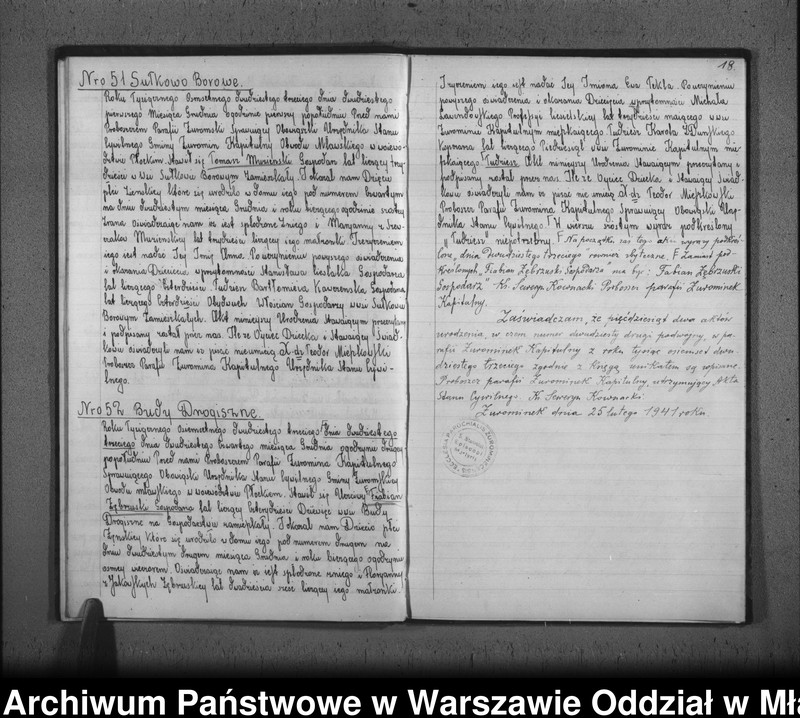 Nro 51 Sułkowo Borowe.
Roku Tysiącznego Osemsetnego dwudziestego trzeciego dnia dwudziestego
pierwszego Miesiąca Grudnia o godzinie pierwszej popołudniu Przed nami
Proboszczem Parafii Żuromski Sprawujący Obowiązki Urzędnika Stanu
Cywilnego Gminy Żuromin Kapitulny Obwodu Mławskiego w wojewo-
dztwie Płockim. Stawił się Tomasz Murzenski Gospodarz lat liczący trzy-
dzieści w wsi Sułkowie Borowym Zamieszkały. I okazał nam Dziecię
płci Żenskiej które się urodziło w domu jego pod numerem Czwartym
na dniu dwudziestym miesiąca Grudnia i roku bieżącego o godzinie
rana oświadczając nam że jest spłodzone z niego i Maryanny z
Murzenskiej lat trzydzieścia liczący i jego małżonki. Życzeniem
jego jest nadać Jey Imię Anna. Po uczynieniu powyższego oświadczenia
i okazania Dziecięcia w przytomności Stanisława Cieslaka Gospodarza
lat liczącego Czterdzieści Tudzież Bartłomieja Gospodarza
lat liczącego Czterdzieści Obydwuch Włościan Gospodarzy w wsi Sułkowie
Borowym Zamieszkałych. Akt niniejszy Urodzenia Stawającym przeczytany
i podpisany został przez nas. Ile że Oyciec Dziecka i Stawający Świad-
kowie oświadczyli nam że pisać nie umieją Teodor Miepkowski
Proboszcz Parafii Żuromina Kapitulnego Urzędnika Stanu Cywi-
lnego.
Nro 52 Budy Drogiszne.
Roku Tysiącznego osemsetnego dwudziestego trzeciego dnia dwudziestego
trzeciego dnia dwudziestego Czwartego miesiąca Grudnia o godzinie
popołudniu Przed nami Proboszczem Parafii Żuromina Kapitulnego
Sprawującego Obowiązki Urzędnika Stanu Cywilnego Gminy Żuromskiej
Obwodu Mławskiego w województwie Płockiem. Stawił się Uczciwy Fabian
Zębrzuski Gospodarz lat liczący Czterdzieści Dziewięć w wsi Budy
Drogiszne na Gospodarstwie zamieszkały. I okazał nam Dziecię płci
Żenskiej które się urodziło w domu jego pod numerem drugiem na
dniu dwudziestym drugiem miesiąca Grudnia i roku bieżącego o godzinie
osmey wieczorem. Oświadczając nam że jest spłodzone z niego i
z Zębrzuskiey lat dwadzieścia sześć liczący jego małżonki.
18.
Życzeniem jego jest nadać Jey Imiona Ewa Tekla. Po uczynieniu
powyższego oświadczenia i okazania Dziecięcia w przytomności Michała
Professyi Ciesielskiej lat trzydzieści mającego w wsi
Żurominie Kapitulnym mieszkającego Tudzież Karola
lat liczącego Piędziesiąt w Żurominie Kapitulnym mie-
szkającego Tudzież Akt niniejszy Urodzenia Stawającym przeczytany i
podpisany został przez nas. Ile że Oyciec Dziecka i Stawający Świad-
kowie oświadczyli nam że pisać nie umieją Teodor Miepkowski
Proboszcz Parafii Żuromina Kapitulnego Sprawujący Obowiązki Urzę-
dnika Stanu Cywilnego. W wierszu szóstym wyraz podkreślony
„Tudzież" niepotrzebny. Na początku zaś tego aktu wyrazy podkreś-
lone „dnia dwudziestego trzeciego" również zbyteczne. Zamiast pod-
kreślonych „Fabian Zębrzuski Gospodarza" ma być: „Fabian Zębrzuski
Gospodarz" Ks. Seweryn Kownacki Proboszcz parafii Żurominek
Kapitulny.
Zaświadczam, że pięćdziesiąt dwa aktów
urodzenia, w czem numer dwudziesty drugi podwójny, w pa-
rafii Żurominek Kapitulny z roku tysiąc osiemset dwu-
dziestego trzeciego zgodne z Księgą unikatem są wpisane.
Proboszcz parafii Żurominek Kapitulny, utrzymujący Akta
Stanu Cywilnego. Ks. Seweryn Kownacki
Żurominek dnia 25 lutego 1941 roku
Archiwum Państwowe w Warszawie Oddział w Mła